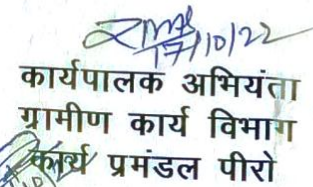 17/10/22
कार्यपालक अभियंता
ग्रामीण कार्य विभाग
कार्य प्रमंडल पीरो